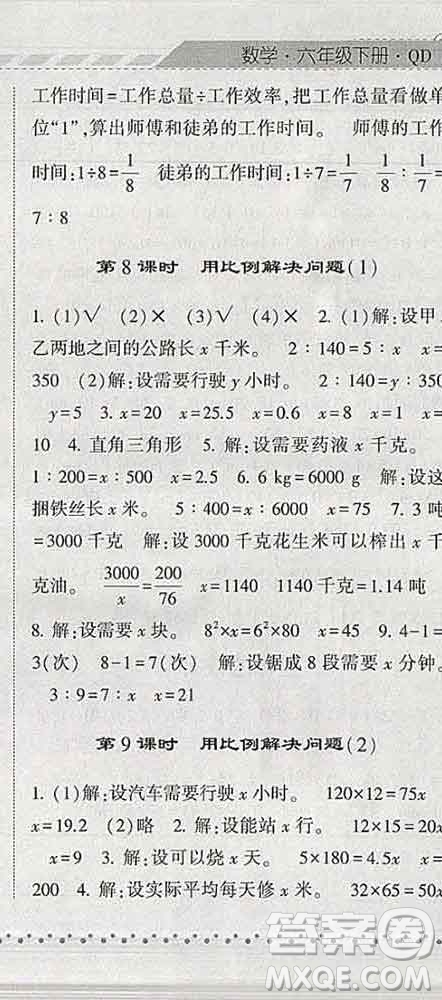 数学·六年级下册·QD
工作时间=工作总量÷工作效率,把工作总量看做单
位“1”,算出师傅和徒弟的工作时间。 师傅的工作
时间:1÷8=1/8 徒弟的工作时间:1÷7=1/7 1/8:1/7=
7:8
第8课时 用比例解决问题(1)
1. (1)√ (2)× (3)√ (4)× 2. (1)解:设甲、
乙两地之间的公路长x千米。 2:140=5:x
350 (2)解:设需要行驶y小时。 2:140=y:350
y=5 3. x=20 x=25.5 x=0.6 x=8 x=1 x=
10 4. 直角三角形 5. 解:设需要药液x千克。
1:200=x:500 x=2.5 6. 6 kg=6000 g 解:设这
捆铁丝长x米。 5:400=x:6000 x=75 7. 3吨
=3000千克 解:设3000千克花生米可以榨出x千
克油。 3000/x=200/76 x=1140 1140千克=1.14吨
8. 解:设需要x块。 8²×x=6²×80 x=45 9. 4-1=
3(次) 8-1=7(次) 解:设锯成8段需要x分钟。
3:9=7:x x=21
第9课时 用比例解决问题(2)
1. (1)解:设汽车需要行驶x小时。 120×12=75x
x=19.2 (2)略 2. 解:设能站x行。 12×15=20x
x=9 3. 解:设可以烧x天。 5×180=4.5x x=
200 4. 解:设实际平均每天修x米。 32×65=50x
答案卷
MXQE.COM